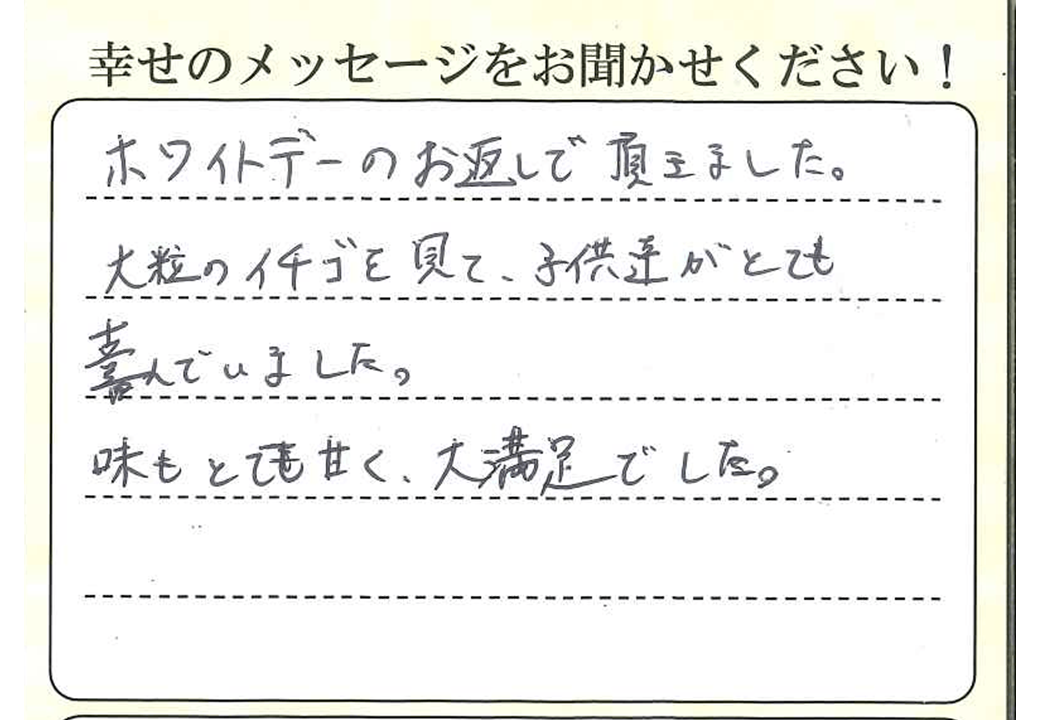 幸せのメッセージをお聞かせください！
ホワイトデーのお返しで頂きました。
大粒のイチゴを見て、子供達がとても
喜んでいました。
味もとても甘く、大満足でした。